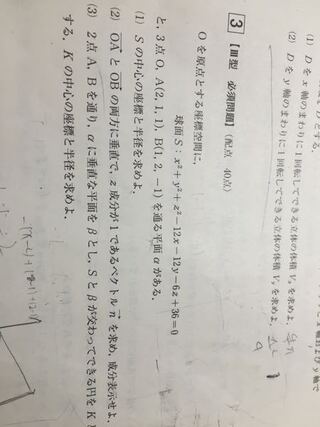 (1) Dをx軸のまわりに1回転してできる立体の体積
(2) Dをy軸のまわりに1回転してできる立体の体積 V を求めよ.
3 【Ⅲ型 必須問題】(配点 40点)
Oを原点とする座標空間に,
球面 S : x²+y²+z²-12x-12y-6z+36=0
と, 3点 O, A(2, 1, 1), B(1, 2, -1) を通る平面 α がある.
(1) S の中心の座標と半径を求めよ.
(2) OA と OB の両方に垂直で, z 成分が1であるベクトル n を求め, 成分表示せよ.
(3) 2点 A, B を通り, α に垂直な平面を β とし, S と β が交わってできる円を K
する. K の中心の座標と半径を求めよ.